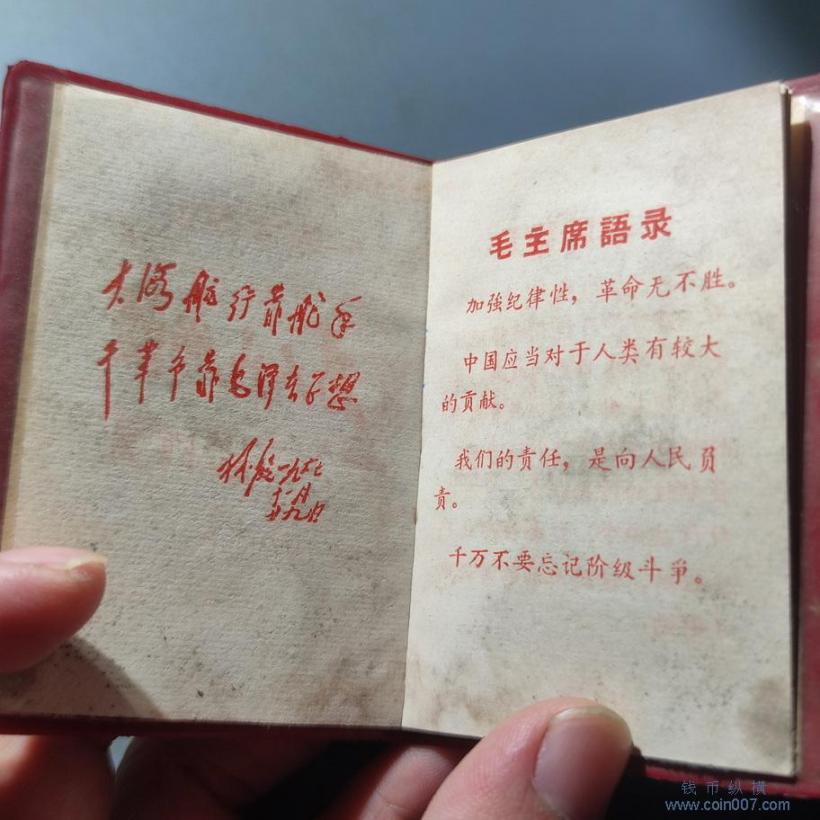 大海航行靠舵手
干革命靠毛泽东思想
林彪
一九六七
十一月
廿九日
毛主席語录
加強纪律性，革命无不胜。
中国应当对于人类有较大
的贡献。
我们的责任，是向人民員
责。
千万不要忘记阶级斗爭。
钱币纵横
www.coin007.com